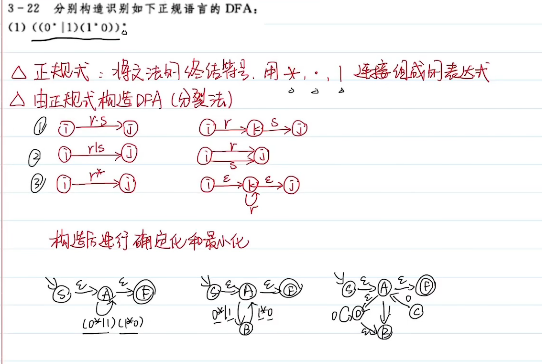 3-22 分别构造识别如下正规语言的 DFA：
(1) ((0*|1)(1*0))*。
△ 正规式：将文法的终结符号，用 *，·，| 连接组成的表达式
△ 由正规式构造DFA（分裂法）
① i r·s j i r k s j
② i r|s j i r s j
③ i r* j i ε k ε j r
构造后进行确定化和最小化
S ε A ε F S ε A ε F S ε A ε F
(0*|1)(1*0) 0*|1 1*0 B 0 D ε 1 0 C
ε B